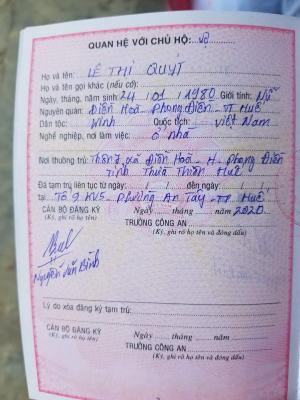 QUAN HỆ VỚI CHỦ HỘ: vợ
Họ và tên: LÊ THỊ QUÝT
Họ và tên gọi khác (nếu có):
Ngày, tháng, năm sinh: 24 / 01 / 1980 Giới tính: Nữ
Nguyên quán: Điền Hoà - Phong Điền - TT Huế
Dân tộc: Kinh Quốc tịch: Việt Nam
Nghề nghiệp, nơi làm việc: ở nhà
Nơi thường trú: Thôn 7, xã Điền Hoà - H - Phong Điền
Tỉnh Thừa Thiên Huế
Đã tạm trú liên tục từ ngày: / / đến ngày / /
tại Tổ 9 KV5 - Phường An Tây - TP Huế
Ngày tháng năm 2020
CÁN BỘ ĐĂNG KÝ TRƯỞNG CÔNG AN
(Ký, ghi rõ họ tên) (Ký, ghi rõ họ tên và đóng dấu)
Nguyễn Văn Bình
Lý do xóa đăng ký tạm trú:
Ngày tháng năm
CÁN BỘ ĐĂNG KÝ TRƯỞNG CÔNG AN
(Ký, ghi rõ họ tên) (Ký, ghi rõ họ tên và đóng dấu)